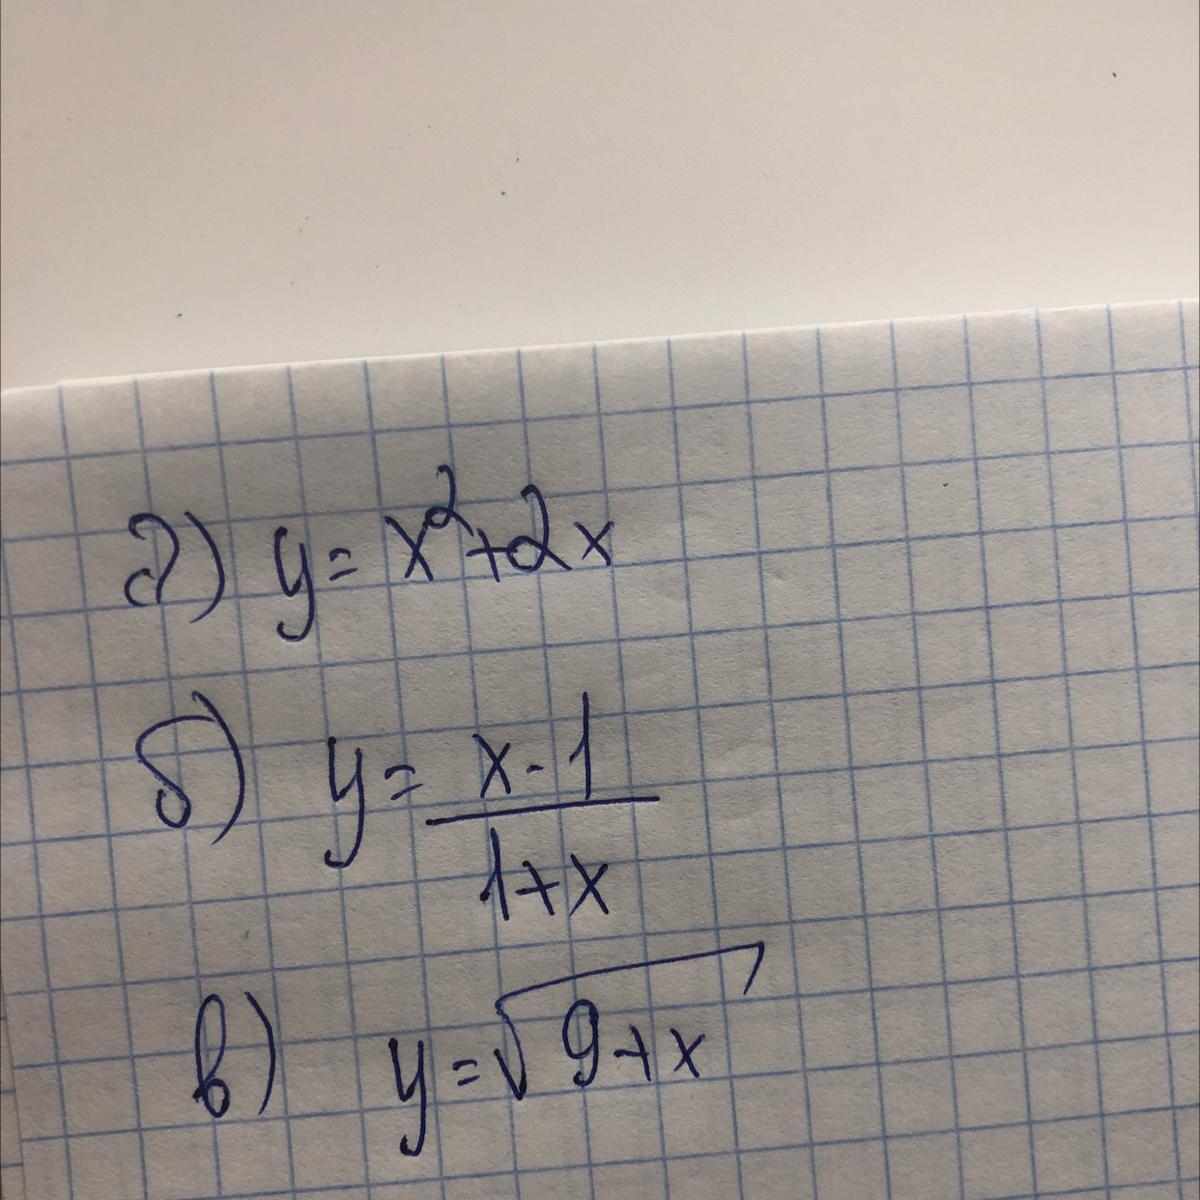 а) y = x² + 2x
б) y = \frac{x - 1}{1 + x}
в) y = \sqrt{9 + x}